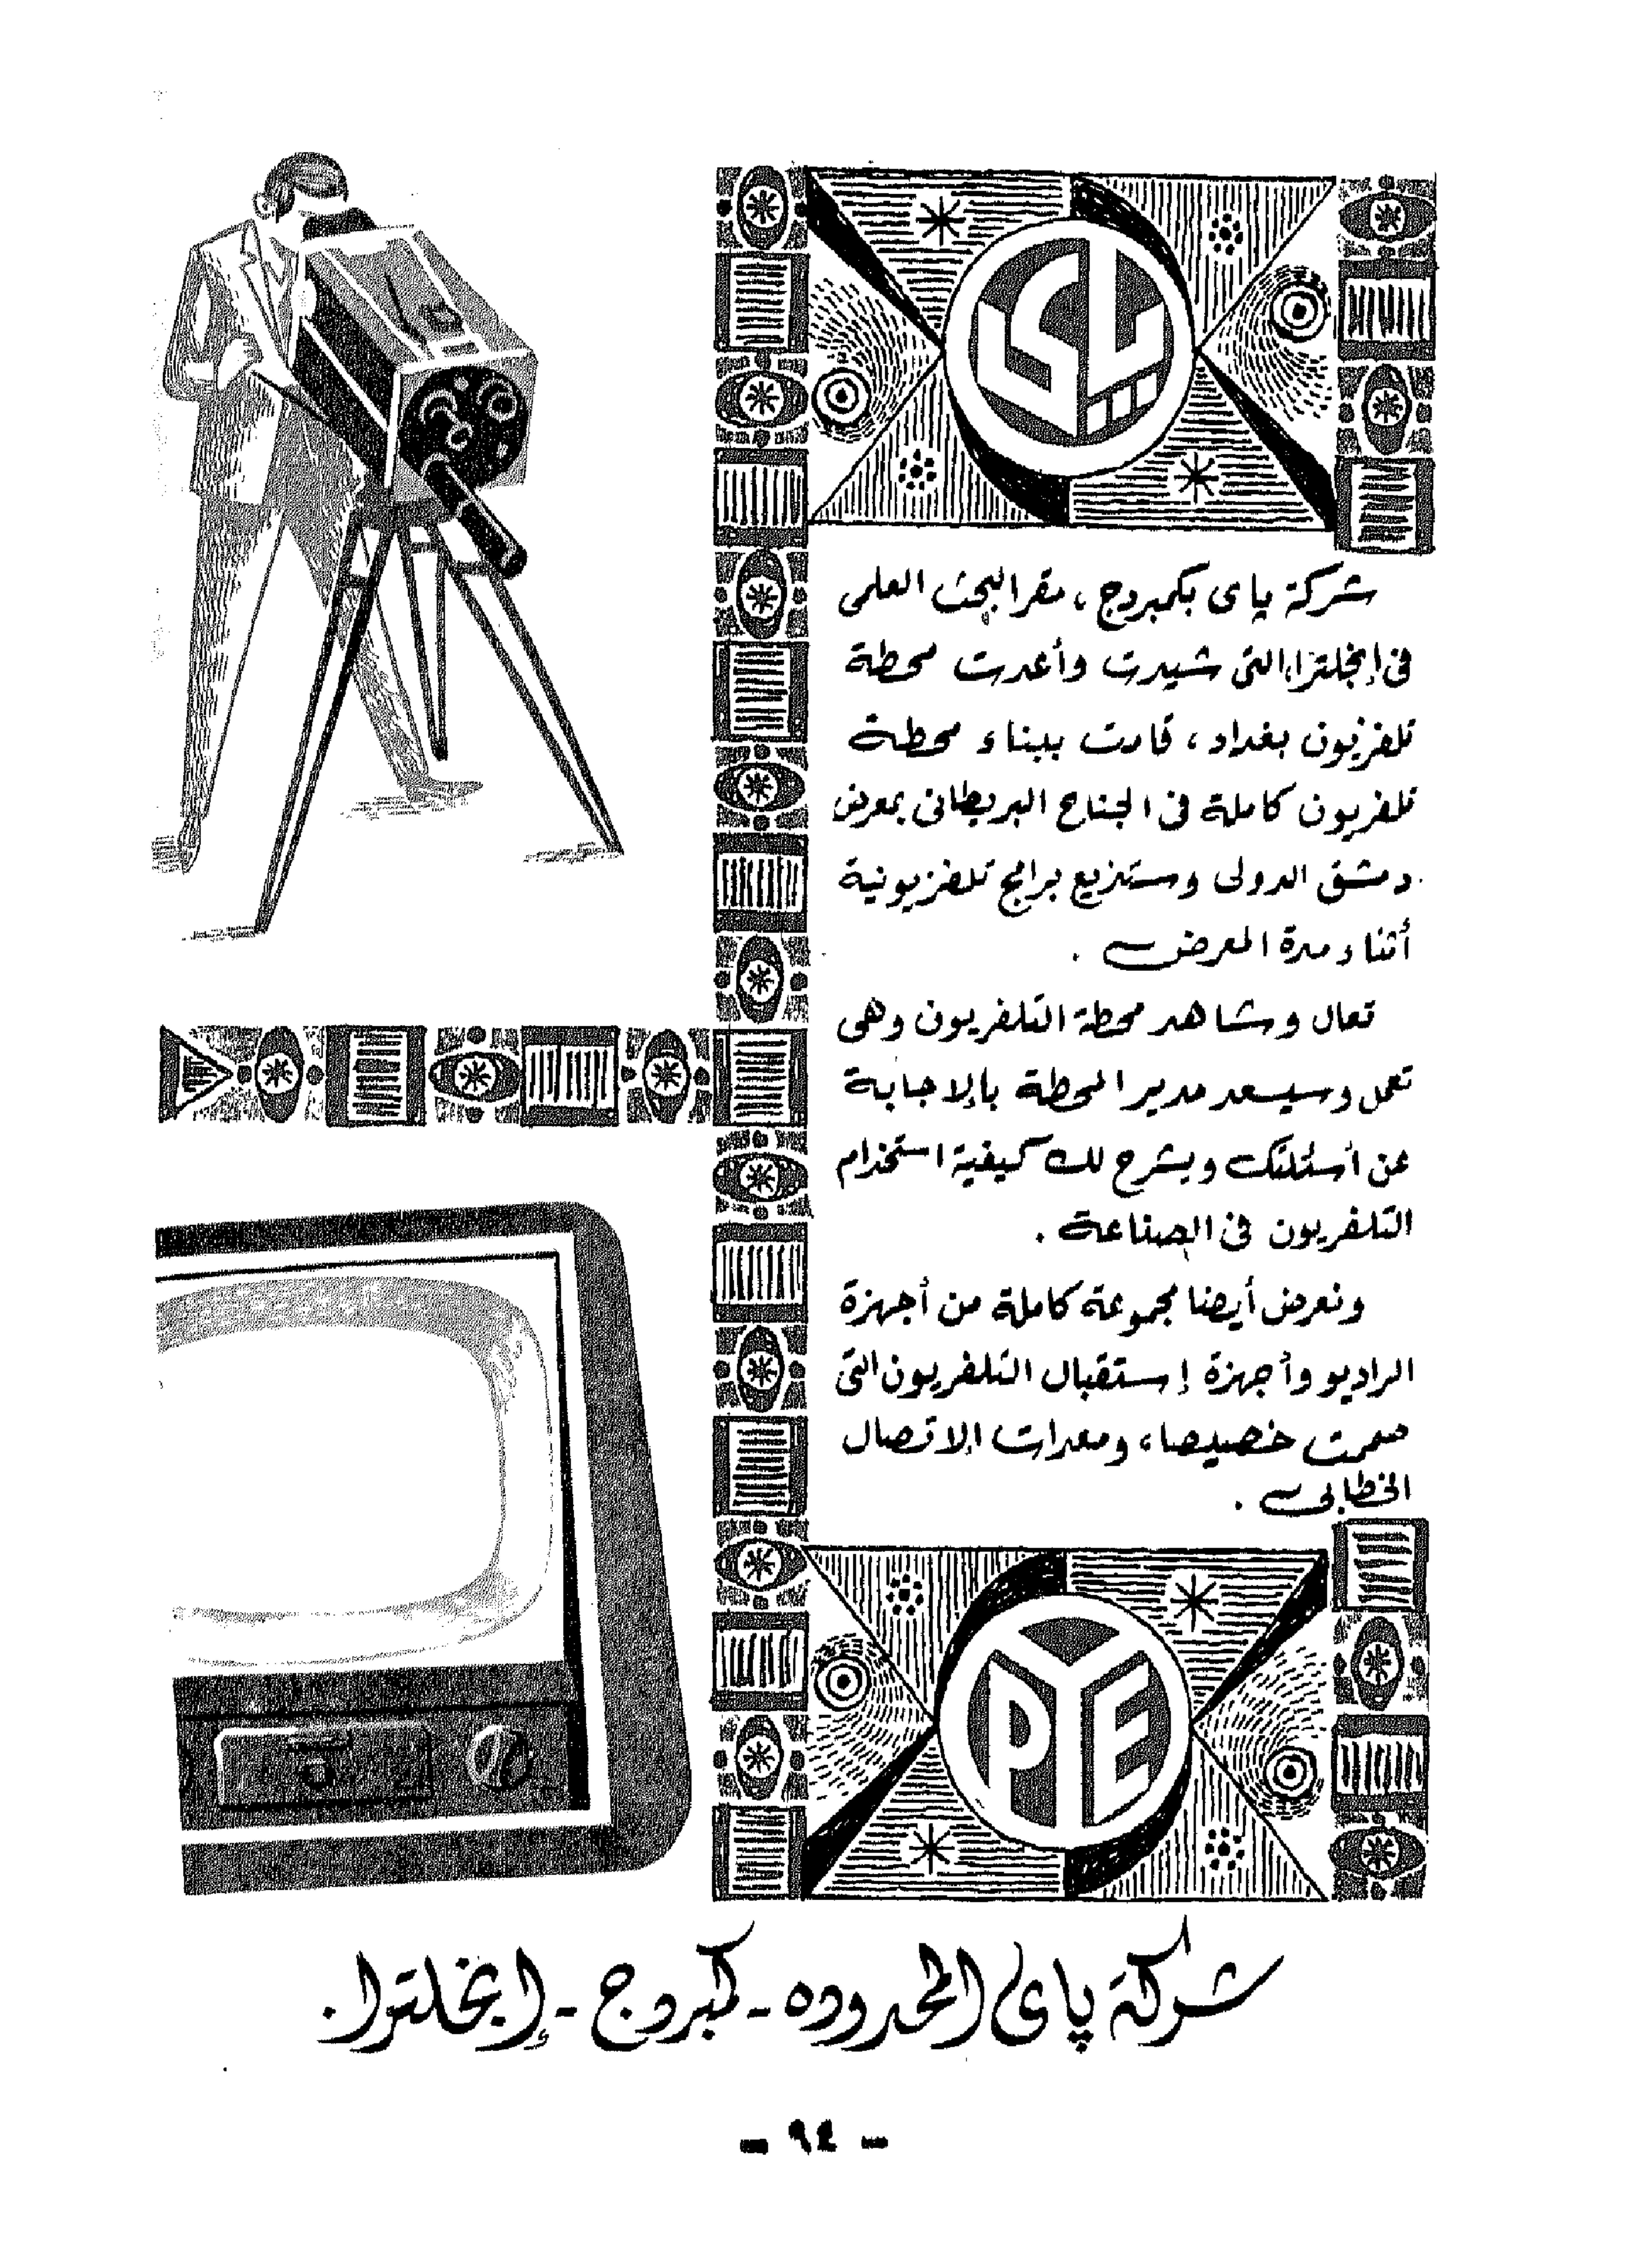 پاى
شركة پاى بكمبردج ، مقر البحث العلمى
فى إنجلترا، التى شيدت وأعدت محطة
تلفزيون بغداد ، قامت ببناء محطة
تلفزيون كاملة فى الجناح البريطانى بمعرض
دمشق الدولى وستذيع برامج تلفزيونية
أثناء مدة المعرض .
تعال وشاهد محطة التلفزيون وهى
تعمل وسيسعد مدير المحطة بالإجابة
عن أسئلتك ويشرح لك كيفية استخدام
التلفزيون فى الصناعة .
ونعرض أيضا مجموعة كاملة من أجهزة
الراديو وأجهزة إستقبال التلفزيون التى
صممت خصيصا ، ومعدات الإتصال
الخطابى .
PYE
شركة پاى المحدوده - كمبردج - إنجلترا .
- ٩٤ -